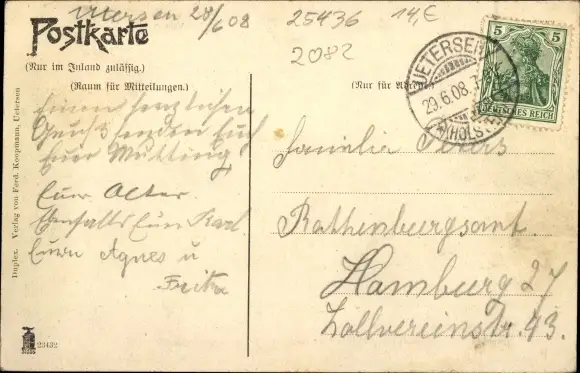 Uetersen 28/6 08
25436
14,€
2082
Postkarte
(Nur im Inland zulässig.)
(Raum für Mitteilungen.)
(Nur für Adresse)
UETERSEN
29.6.08.7
(HOLST.)
5 5
DEUTSCHES REICH
Einen herzlichen
Gruß senden Euch
Eure Mutting
Eure Alter
Ebenfalls Euer Karl
Eure Agnes u
Fritz
Familie
Rothenburgsamt.
Hamburg 27
Zollvereinsstr. 43.
Duplex. Verlag von Ferd. Koopmann, Uetersen
23432